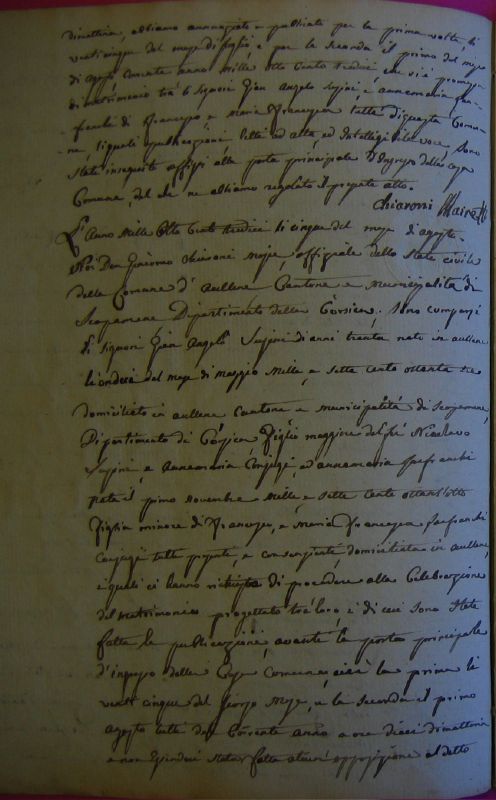 dimattina, abbiamo annunziato e publicato per la prima volta, li
venti cinque del mese di luglio, e per la seconda il primo del mese
di agosto corrente anno mille otto cento tredici, che vi è promessa
di matrimonio trà li Signori Gian Angelo Susini e annamaria
di Francesco e Maria Francesca tutti di questa Comu-
ne, li quali publicazioni lette ad alta ed Intelligibile voce, sono
state inseguito affissi alla porta principale d'Ingresso della casa
Comune del che ne abbiamo regolato il presente atto.
Chiaroni Maire
L'Anno mille otto cento tredici li cinque del mese di agosto.
Noi Don Giacomo Maire, offiziale dello Stato civile
della Comune d'aullene Cantone e municipalità di
Scopamene Dipartimento della Corsica. Sono comparsi
li Signori Gian Angelo Susini di anni trenta nato in aullene
li ondeci del mese di Maggio mille e sette cento ottanta tre
domiciliato in aullene Cantone e municipalità di Scopamene,
Dipartimento di Corsica Figlio maggiore del fù Nicolavo
Susini, e Annamaria Conjugi, ed annamaria
nata il primo Novembre mille e sette cento ottant'otto
Figlia minore di Francesco, e Maria Francesca
Conjugi tutti presenti, e consenzienti, domiciliata in aullene,
i quali ci hanno richiesto di procedere alla Celebrazione
del matrimonio progettato trà loro e di cui sono state
fatte le publicazioni, avante la porta principale
d'ingresso della Casa Comune, cioè la prima li
venti cinque del scorso Mese, e la seconda il primo
agosto tutti del corrente anno a ore dieci dimattina
e non essendoci stata fatta alcuni opposizione al detto